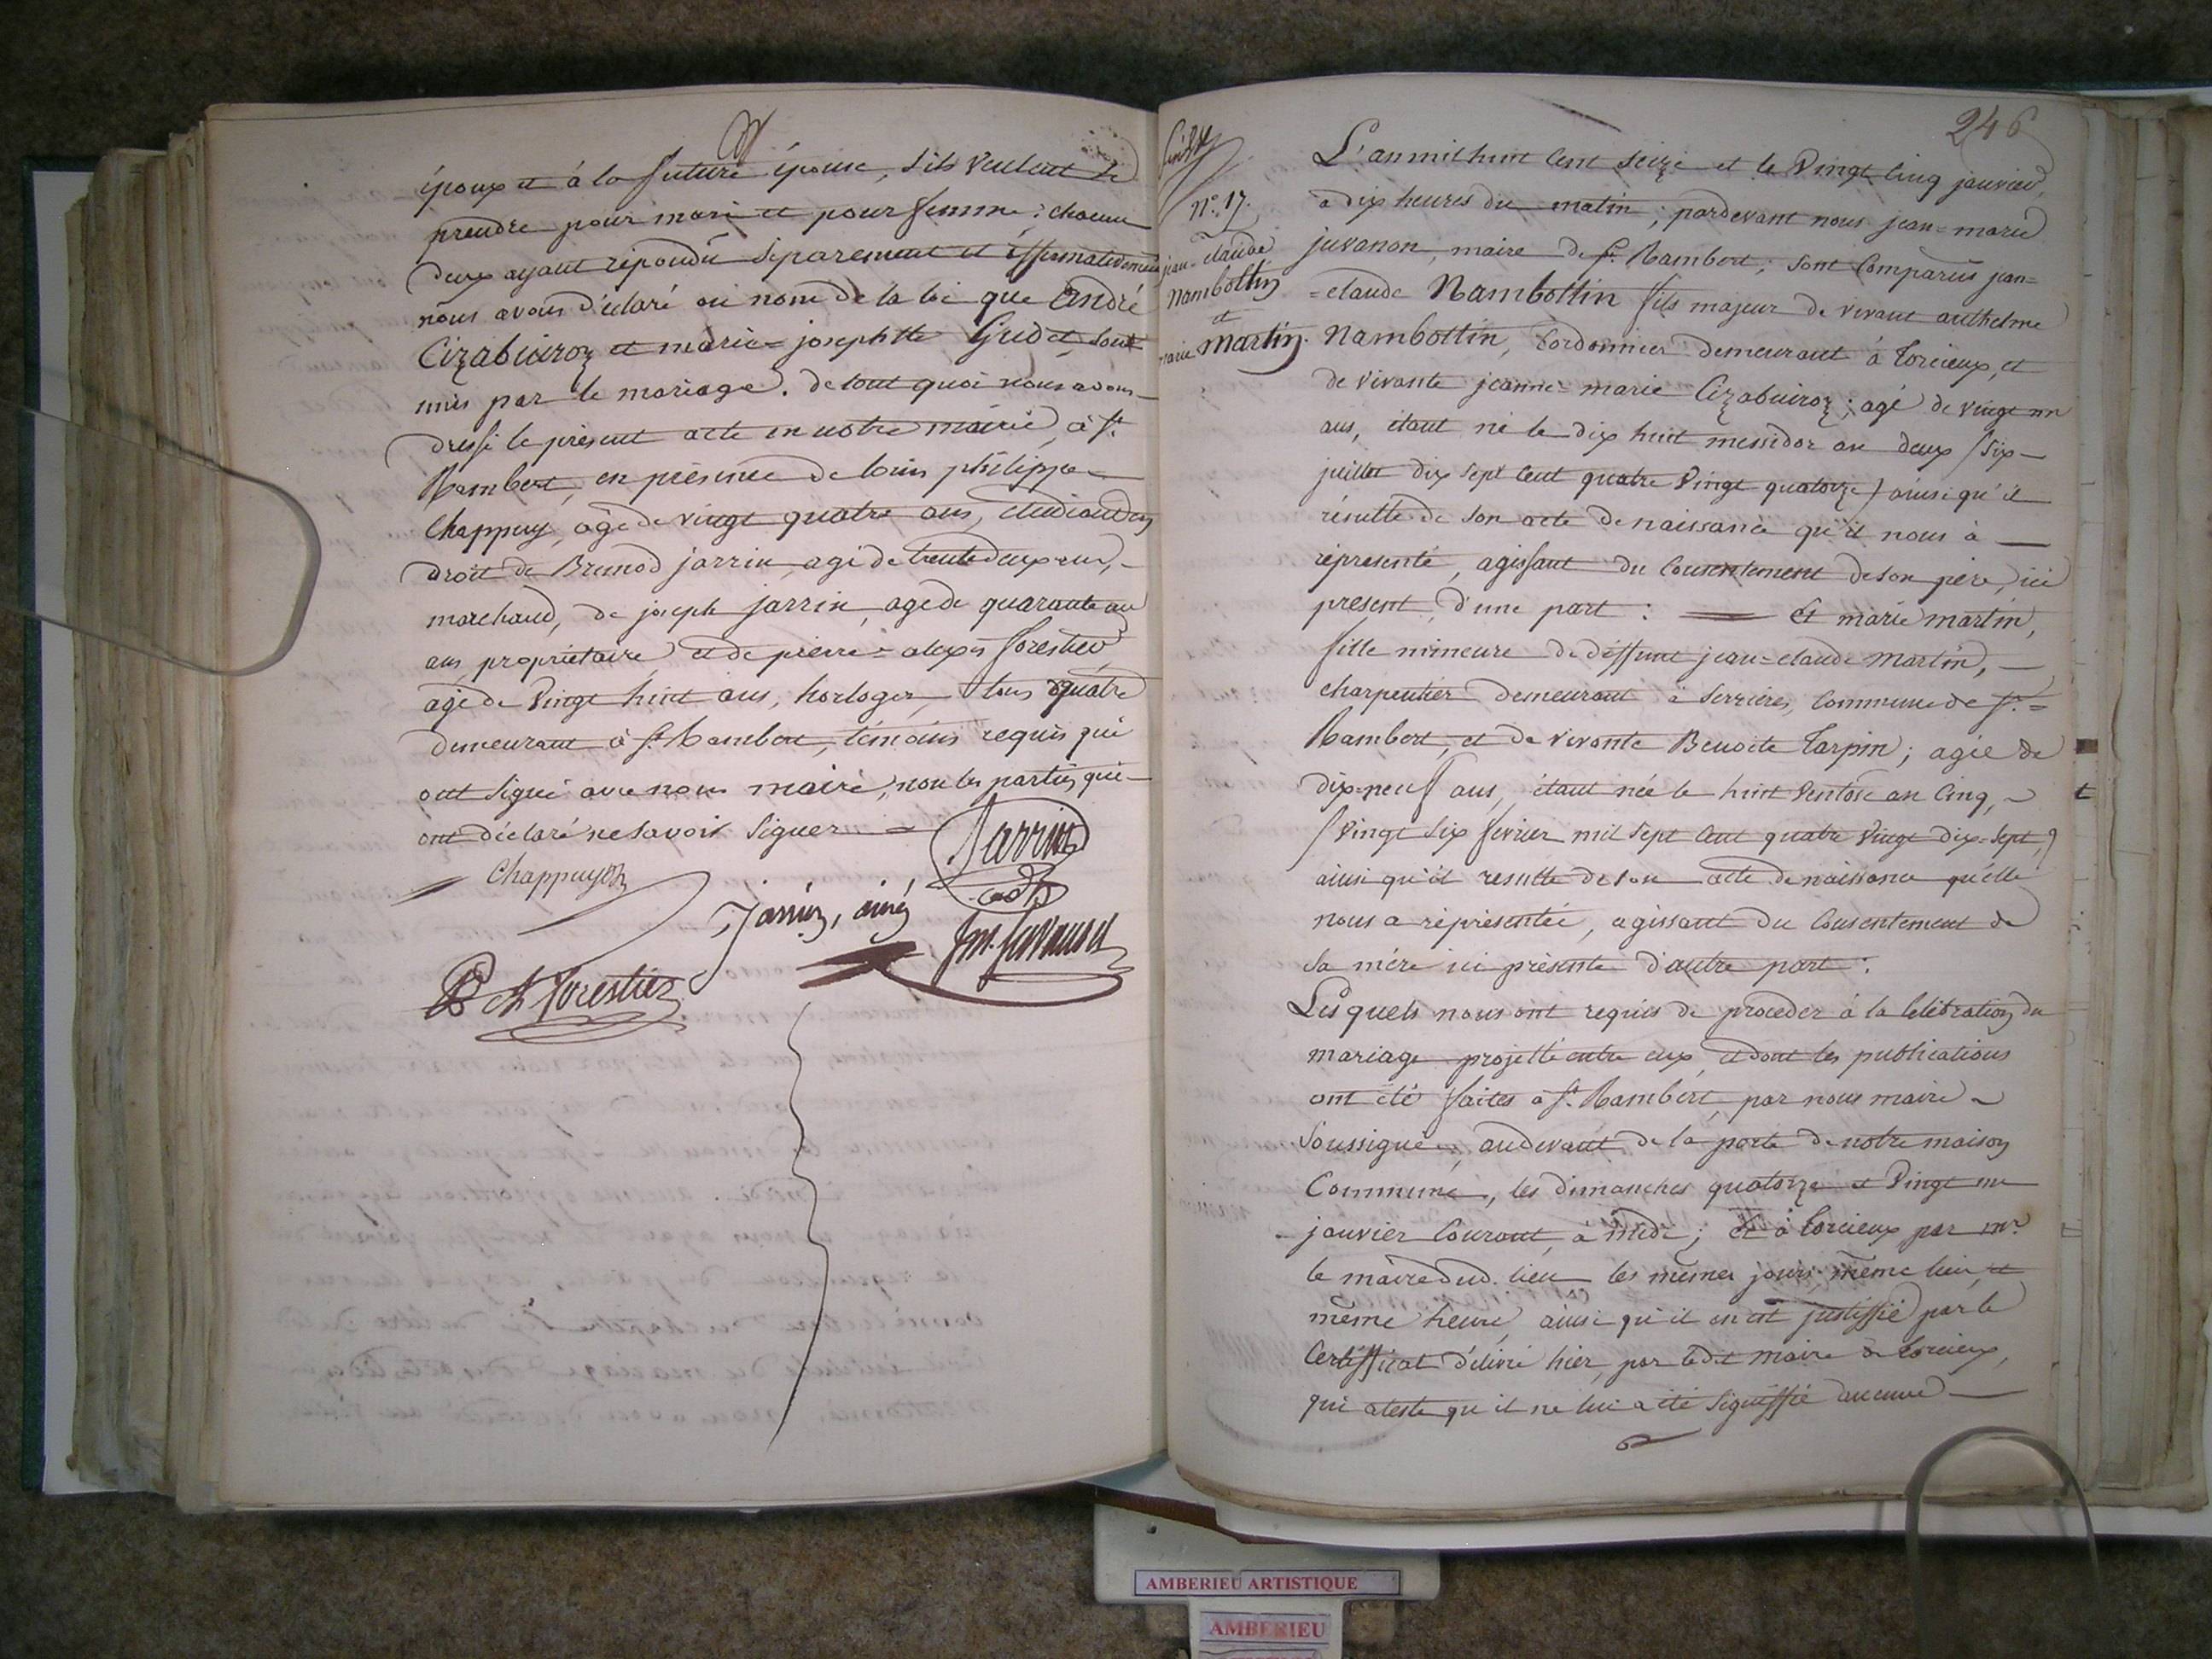 époux et à la future épouse, s'ils veulent se
prendre pour mari et pour femme; chacun
deux ayant répondu séparement et affirmativement
nous avons déclaré au nom de la loi que André
Cizabuiroz et marie=josephtte Gudet, sont
unis par le mariage. de tout quoi nous avons
dressé le présent acte en notre mairie, à St.
Rambert, en présence de louis philippe
Chappuy, agé de vingt quatre ans, étudiant en
droit de Brunod jarrin, agé de trente deux ans,
marchand, de joseph jarrin, agé de quarante un
ans, propriétaire et de pierre=alexis forestier
agé de vingt huit ans, horloger, tous quatre
demeurant à St. Rambert, témoins requis qui
ont signé avec nous maire, non les parties qui
ont déclaré ne savoir signer
Jarrin
Chappuy
Jarrin, ainé
Jm. Juvanon
P A forestier
246
n.° 17.
jean-claude
Nambottin
et
marie martin.
L'an mil huit cent seize et le vingt cinq janvier,
à dix heures du matin; pardevant nous jean=marie
juvanon, maire de St. Rambert; sont comparus jean=
=claude Nambottin fils majeur de vivant anthelme
Nambottin, Cordonnier demeurant à torcieux, et
de vivante jeanne=marie Cizabuiroz; agé de vingt un
ans, étant né le dix huit messidor an deux (six
juillet dix sept cent quatre vingt quatorze) ainsi qu'il
résulte de son acte de naissance qu'il nous à
représenté, agissant du consentement de son père, ici
présent, d'une part: Et marie martin,
fille mineure de deffunt jean=claude martin,
charpentier demeurant à Serrières, Commune de St.=
Rambert, et de vivante Benoite tarpin; agée de
dix=neuf ans, étant née le huit ventose an cinq,
(vingt six fevrier mil sept cent quatre vingt dix=sept,)
ainsi qu'il resulte de son acte de naissance qu'elle
nous a réprésentée, agissant du consentement de
sa mère ici présente d'autre part:
Lesquels nous ont requis de proceder à la célébration du
mariage projetté entre eux, et dont les publications
ont été faites à St. Rambert, par nous maire
soussigné, audevant de la porte de notre maison
Commune, les dimanches quatorze et vingt un
janvier courant, à midi; et à torcieux par mr.
le maire dud. lieu les mêmes jours, même lieu, et
même heure, ainsi qu'il en est justiffié par le
Certifficat délivré hier, par ledit maire de torcieux,
qui ateste qu'il ne lui a été signiffié aucune
AMBERIEU ARTISTIQUE
AMBERIEU